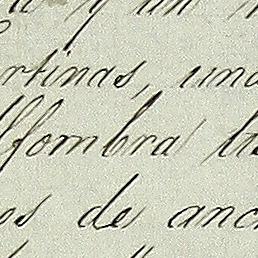 y un
rtinas, una
lfombra
os de anc